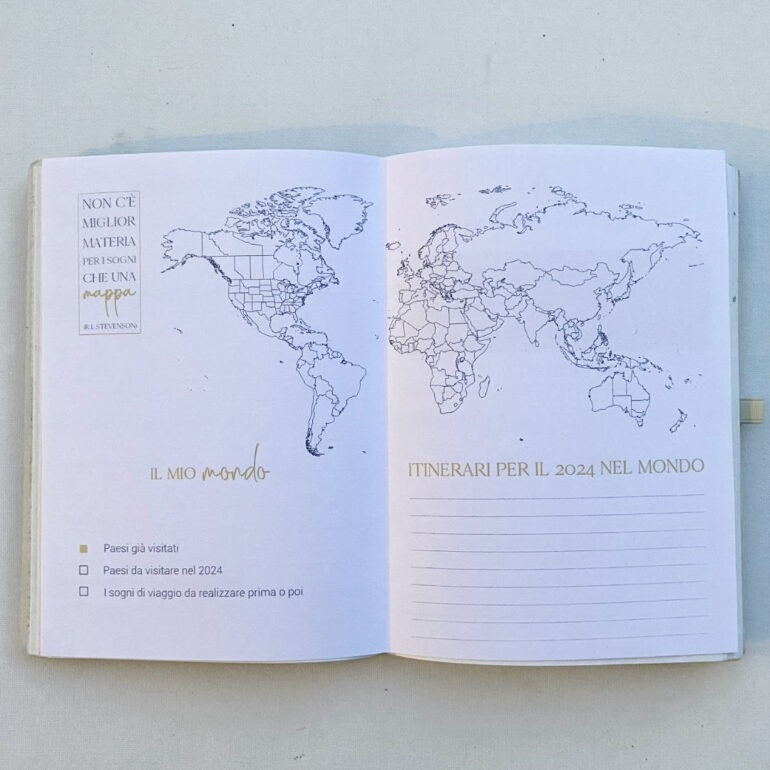 NON C'È
MIGLIOR
MATERIA
PER I SOGNI
CHE UNA
mappa
(R.L. STEVENSON)
IL MIO mondo
Paesi già visitati
Paesi da visitare nel 2024
I sogni di viaggio da realizzare prima o poi
ITINERARI PER IL 2024 NEL MONDO